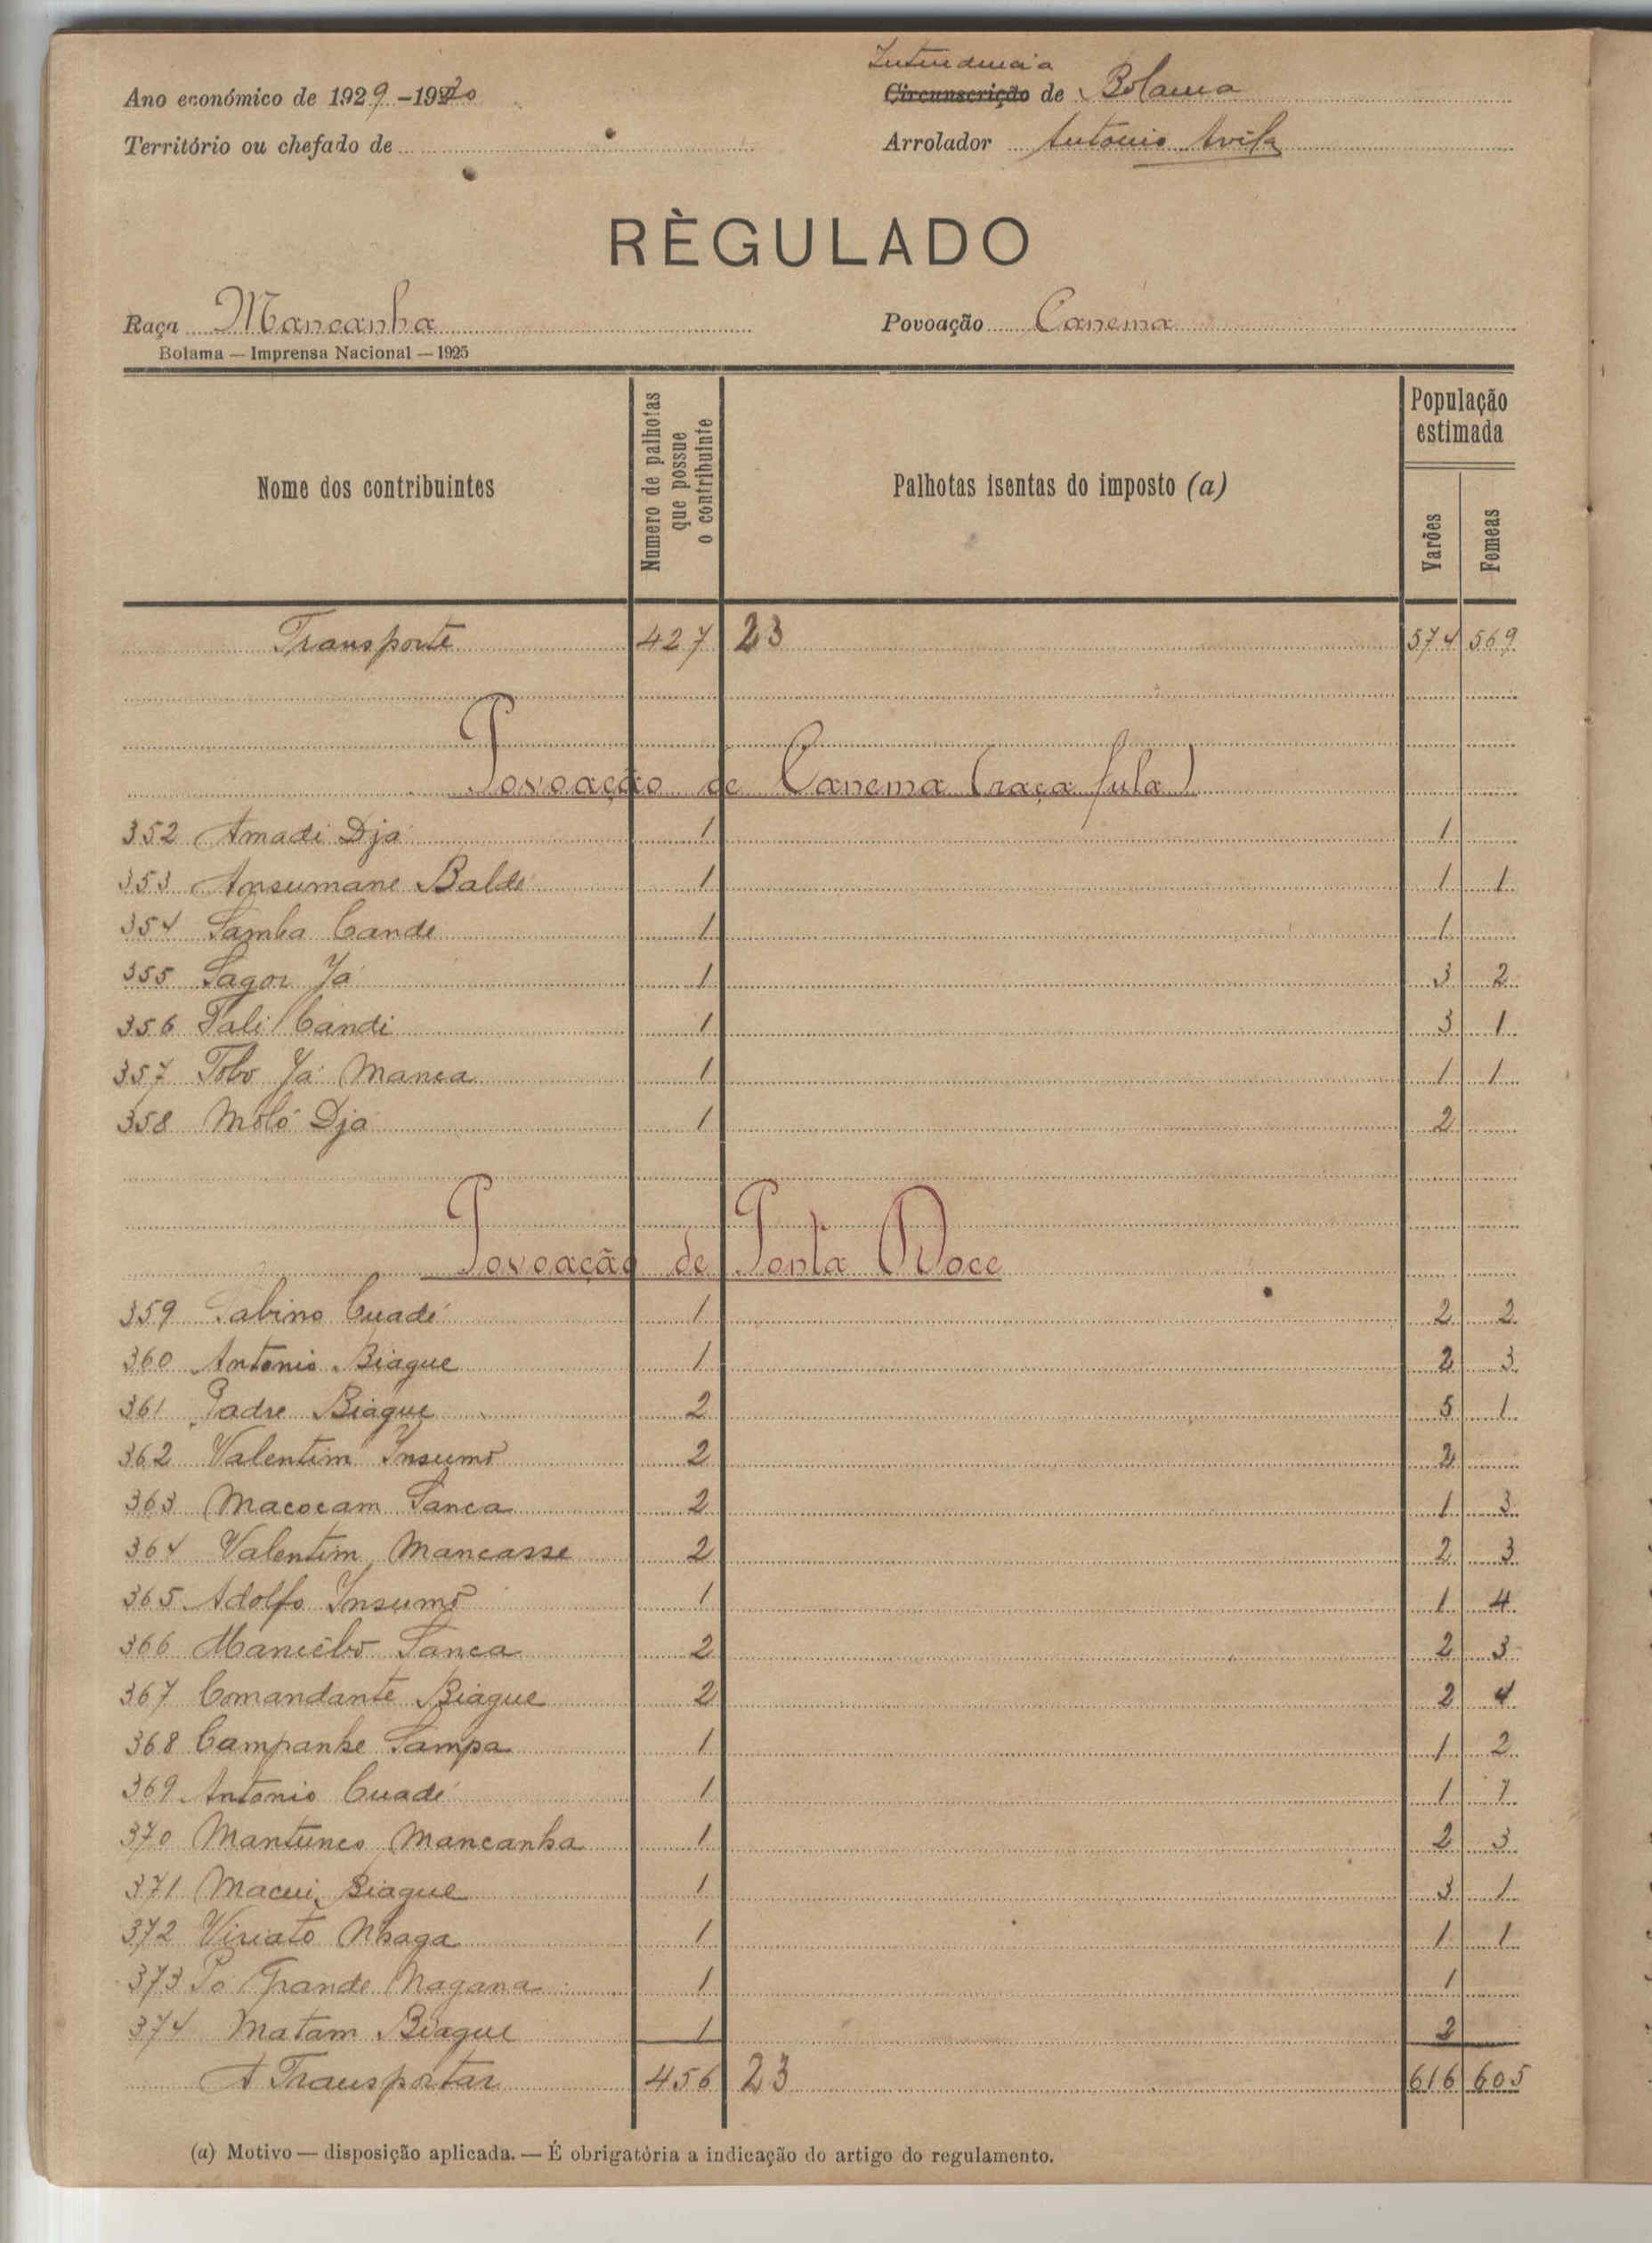 Intendencia
Ano económico de 1929-1930
Circunscrição de Bolama
Território ou chefado de
Arrolador Antonio Avila
RÈGULADO
Raça Mancanha
Povoação Canema
Bolama — Imprensa Nacional — 1925
Nome dos contribuintes
Numero de palhotas que possue o contribuinte
Palhotas isentas do imposto (a)
População estimada
Varões
Femeas
Transporte 427 23 574 569
Povoação de Canema (raça fula)
352 Amadi Djá 1 1
353 Ansumane Baldé 1 1 1
354 Samba Cande 1 1
355 Sagor Já 1 3 2
356 Sali Candi 1 3 1
357 Tobo Já Manca 1 1 1
358 Moló Djá 1 2
Povoação de Ponta Doce
359 Sabino Cuadé 1 2 2
360 Antonio Biague 1 2 3
361 Padre Biague 2 5 1
362 Valentim Insumo 2 2
363 Macocam Sanca 2 1 3
364 Valentim Mancasse 2 2 3
365 Adolfo Insumo 1 1 4
366 Manelbo Sanca 2 2 3
367 Comandante Biague 2 2 4
368 Campanhe Sampa 1 1 2
369 Antonio Cuadé 1 1 1
370 Mantunco Mancanha 1 2 3
371 Macui Biague 1 3 1
372 Viriato Nhaga 1 1 1
373 Pó Grande Nagana 1 1
374 Matam Biague 1 2
A Transportar 456 23 616 605
(a) Motivo — disposição aplicada. — É obrigatória a indicação do artigo do regulamento.